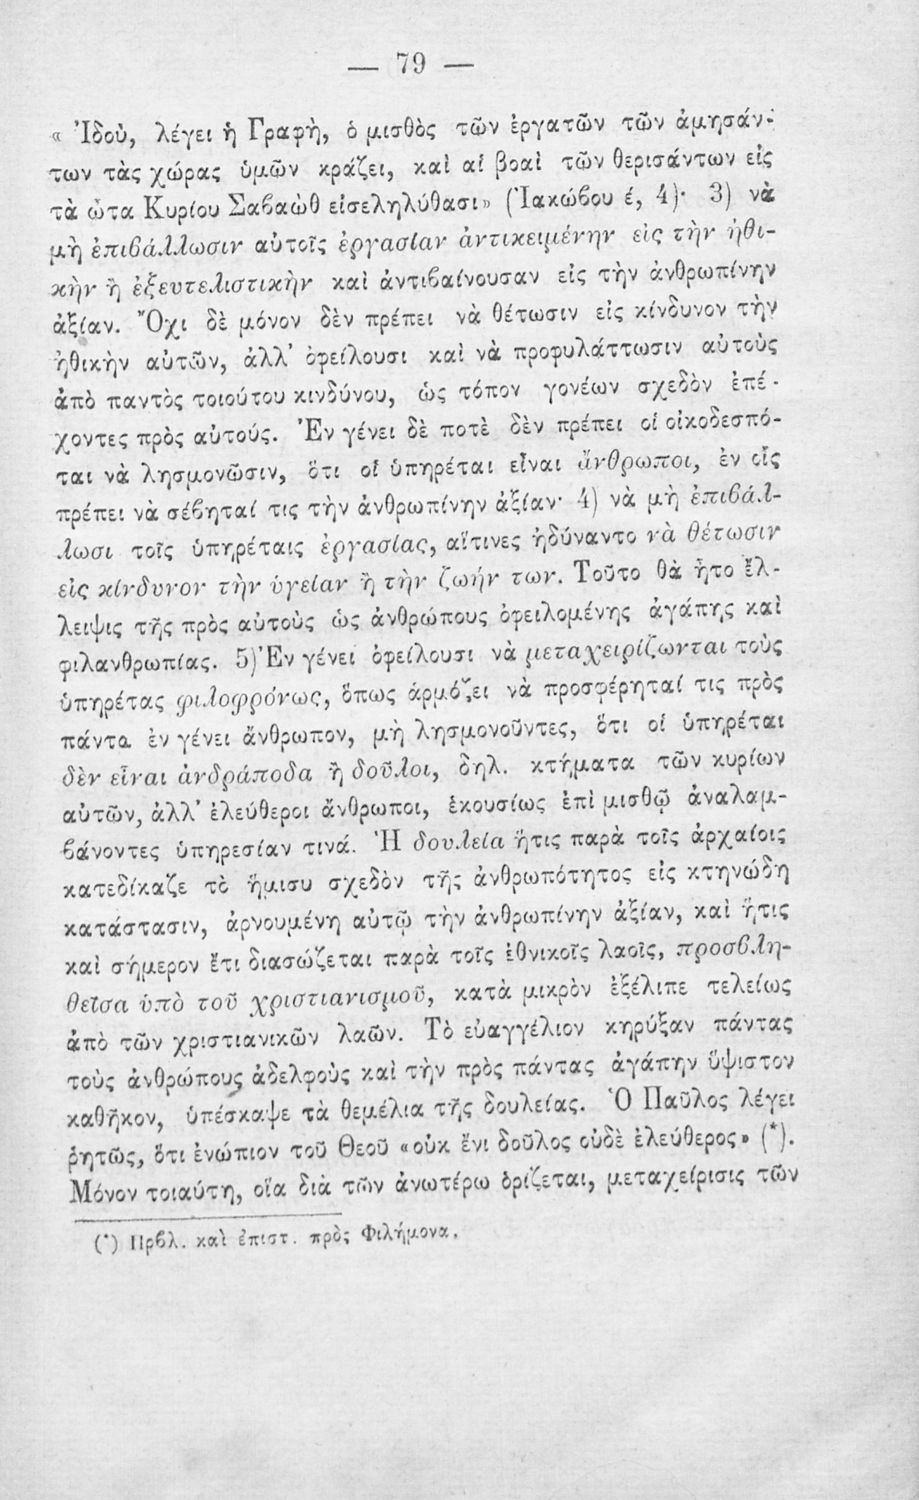 — 79 —
« Ἰδοὺ, λέγει ἡ Γραφὴ, ὁ μισθὸς τῶν ἐργατῶν τῶν ἀμησάν-
των τὰς χώρας ὑμῶν κράζει, καὶ αἱ βοαὶ τῶν θερισάντων εἰς
τὰ ὦτα Κυρίου Σαβαὼθ εἰσεληλύθασι» (Ἰακώβου έ, 4)· 3) νὰ
μὴ ἐπιβάλλωσιν αὐτοῖς ἐργασίαν ἀντικειμένην εἰς τὴν ἠθι-
κὴν ἢ ἐξευτελιστικὴν καὶ ἀντιβαίνουσαν εἰς τὴν ἀνθρωπίνην
ἀξίαν. Ὄχι δὲ μόνον δὲν πρέπει νὰ θέτωσιν εἰς κίνδυνον τὴν
ἠθικὴν αὐτῶν, ἀλλ' ὀφείλουσι καὶ νὰ προφυλάττωσιν αὐτοὺς
ἀπὸ παντὸς τοιούτου κινδύνου, ὡς τόπον γονέων σχεδὸν ἐπέ-
χοντες πρὸς αὐτούς. Ἐν γένει δὲ ποτὲ δὲν πρέπει οἱ οἰκοδεσπό-
ται νὰ λησμονῶσιν, ὅτι οἱ ὑπηρέται εἶναι ἄνθρωποι, ἐν οἷς
πρέπει νὰ σέβηταί τις τὴν ἀνθρωπίνην ἀξίαν· 4) νὰ μὴ ἐπιβάλ-
λωσι τοῖς ὑπηρέταις ἐργασίας, αἵτινες ἠδύναντο νὰ θέτωσιν
εἰς κίνδυνον τὴν ὑγείαν ἢ τὴν ζωήν των. Τοῦτο θὰ ἦτο ἔλ-
λειψις τῆς πρὸς αὐτοὺς ὡς ἀνθρώπους ὀφειλομένης ἀγάπης καὶ
φιλανθρωπίας. 5) Ἐν γένει ὀφείλουσι νὰ μεταχειρίζωνται τοὺς
ὑπηρέτας φιλοφρόνως, ὅπως ἁρμόζει νὰ προσφέρηταί τις πρὸς
πάντα ἐν γένει ἄνθρωπον, μὴ λησμονοῦντες, ὅτι οἱ ὑπηρέται
δὲν εἶναι ἀνδράποδα ἢ δοῦλοι, δηλ. κτήματα τῶν κυρίων
αὐτῶν, ἀλλ' ἐλεύθεροι ἄνθρωποι, ἑκουσίως ἐπὶ μισθῷ ἀναλαμ-
βάνοντες ὑπηρεσίαν τινά. Ἡ δουλεία ἥτις παρὰ τοῖς ἀρχαίοις
κατεδίκαζε τὸ ἥμισυ σχεδὸν τῆς ἀνθρωπότητος εἰς κτηνώδη
κατάστασιν, ἀρνουμένη αὐτῷ τὴν ἀνθρωπίνην ἀξίαν, καὶ ἥτις
καὶ σήμερον ἔτι διασώζεται παρὰ τοῖς ἐθνικοῖς λαοῖς, προσβλη-
θεῖσα ὑπὸ τοῦ χριστιανισμοῦ, κατὰ μικρὸν ἐξέλιπε τελείως
ἀπὸ τῶν χριστιανικῶν λαῶν. Τὸ εὐαγγέλιον κηρύξαν πάντας
τοὺς ἀνθρώπους ἀδελφοὺς καὶ τὴν πρὸς πάντας ἀγάπην ὕψιστον
καθῆκον, ὑπέσκαψε τὰ θεμέλια τῆς δουλείας. Ὁ Παῦλος λέγει
ῥητῶς, ὅτι ἐνώπιον τοῦ Θεοῦ «οὐκ ἔνι δοῦλος οὐδὲ ἐλεύθερος» (*).
Μόνον τοιαύτη, οἵα διὰ τῶν ἀνωτέρω ὁρίζεται, μεταχείρισις τῶν
(*) Πρβλ. καὶ ἐπιστ. πρὸς Φιλήμονα.